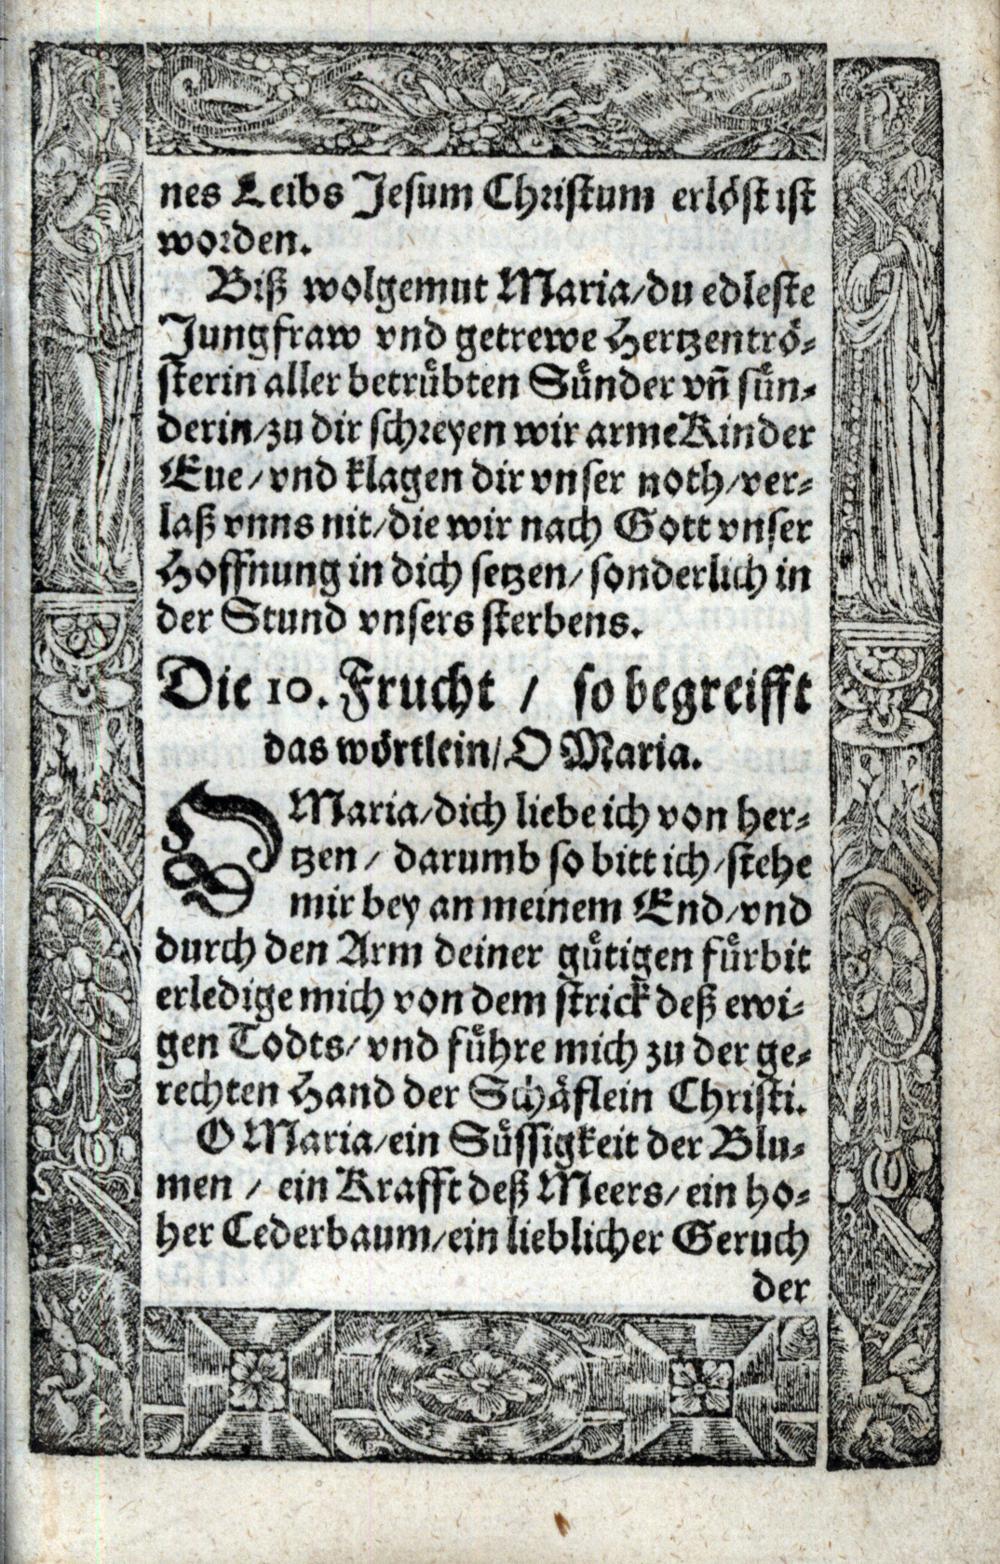 nes Leibs Jesum Christum erlöst ist
worden.
Biß wolgemut Maria/du edleste
Jungfraw vnd getrewe Hertzentrö⸗
sterin aller betruͤbten Suͤnder vñ suͤn⸗
derin/zu dir schreyen wir arme Kinder
Eue/vnd klagen dir vnser noth/ver⸗
laß vnns nit/die wir nach Gott vnser
Hoffnung in dich setzen/sonderlich in
der Stund vnsers sterbens.
Die 10. Frucht / so begreifft
das wörtlein/O Maria.
O Maria/dich liebe ich von her⸗
tzen/ darumb so bitt ich/stehe
mir bey an meinem End/vnd
durch den Arm deiner guͤtigen fuͤrbit
erledige mich von dem strick deß ewi⸗
gen Todts/ vnd fuͤhre mich zu der ge⸗
rechten Hand der Schaͤflein Christi.
O Maria/ein Suͤssigkeit der Blu⸗
men / ein Krafft deß Meers/ein ho⸗
her Cederbaum/ein lieblicher Geruch
der